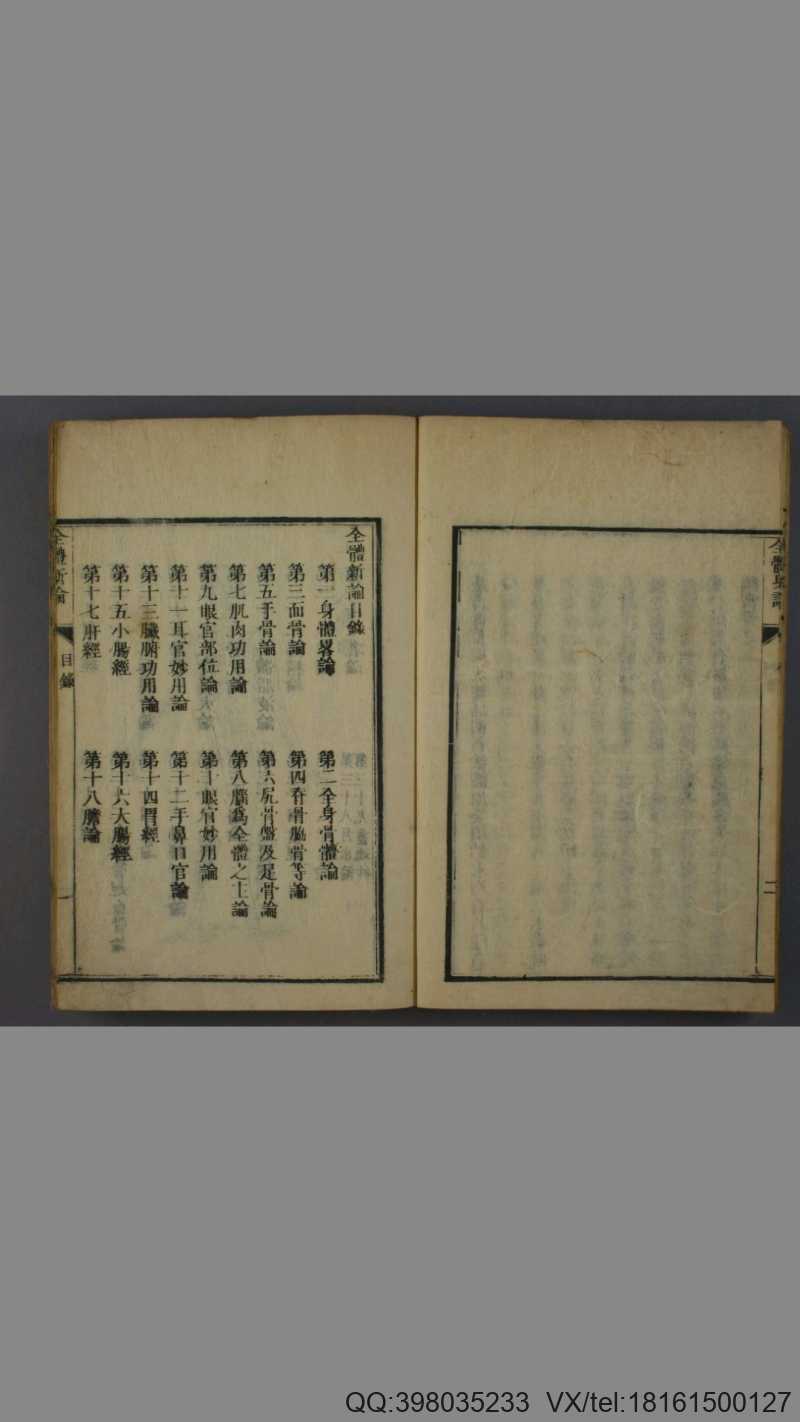 全體新論
二
全體新論目錄
第一身體畧論
第二全身骨體論
第三面骨論
第四脊骨脇骨等論
第五手骨論
第六尻骨盤及足骨論
第七肌肉功用論
第八腦為全體之主論
第九眼官部位論
第十眼官妙用論
第十一耳官妙用論
第十二手鼻口官論
第十三臟腑功用論
第十四胃經
第十五小腸經
第十六大腸經
第十七肝經
第十八膽論
全體新論
目錄
一
QQ:398035233 VX/tel:18161500127